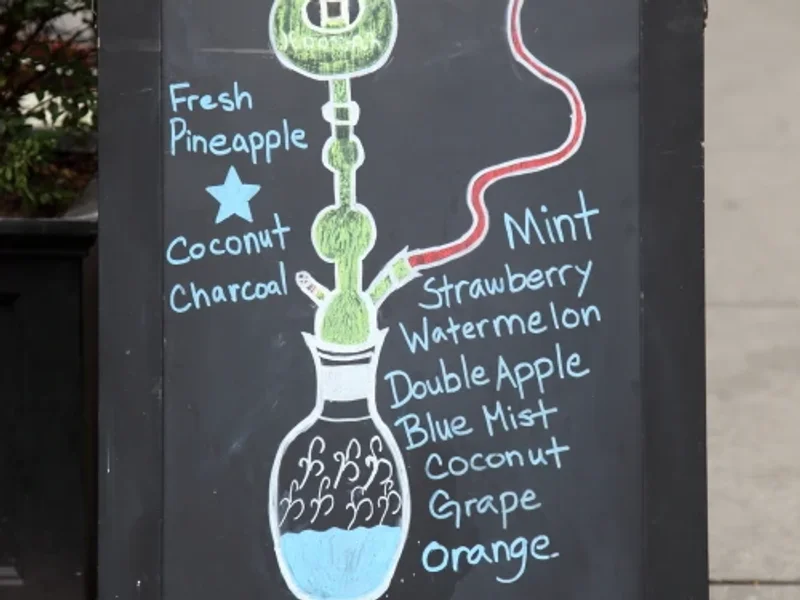 Fresh
Pineapple
Coconut
Charcoal
Mint
Strawberry
Watermelon
Double Apple
Blue Mist
Coconut
Grape
Orange